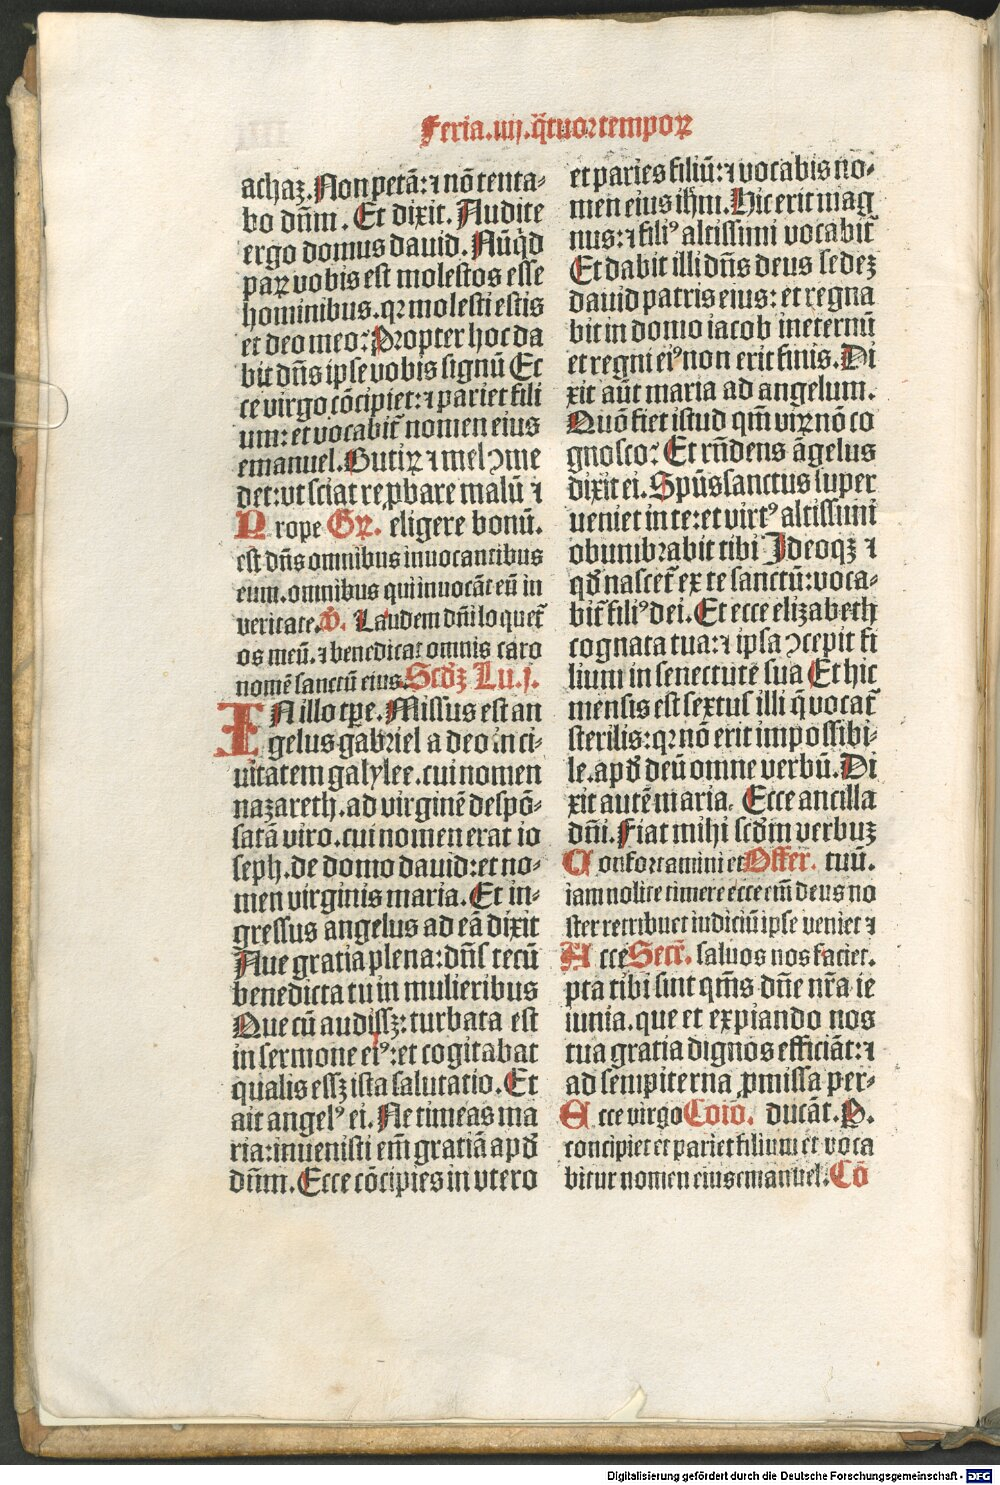 Feria.iiij.q̃tuortempoꝝ
achaz. Non petã: ⁊ nõ tenta-
bo dñm. Et dixit. Audite
ergo domus dauid. Nũqd̉
paꝝ vobis est molestos esse
hominibus. qꝛ molesti estis
et deo meo? Propter hoc da
bit dñs ipse vobis signũ Ec
ce virgo cõcipiet: ⁊ pariet fili
um: et vocabit᷑ nomen eius
emanuel. Butiꝝ ⁊ mel ꝯme
det: vt sciat reꝓbare malũ ⁊
Prope Gꝝ. eligere bonũ.
est dñs omnibus inuocantibus
eum. omnibus qui inuocãt eũ in
veritate. ꝟ. Laudem dñi loquet᷑
os meũ. ⁊ benedicat omnis caro
nomẽ sanctũ eius. Scdꝫ Lu.j.
IN illo tꝑe. Missus est an
gelus gabriel a deo in ci-
uitatem galylee. cui nomen
nazareth. ad virginẽ despõ-
satã viro. cui nomen erat io
seph. de domo dauid: et no-
men virginis maria. Et in-
gressus angelus ad eã dixit
Aue gratia plena: dñs tecũ
benedicta tu in mulieribus
Que cũ audissꝫ: turbata est
in sermone eiꝰ: et cogitabat
qualis essꝫ ista salutatio. Et
ait angelꝰ ei. Ne timeas ma
ria: inuenisti em̃ gratiã apd̉
dñm. Ecce cõcipies in vtero
et paries filiũ: ⁊ vocabis no-
men eius ihm̃. Hic erit mag
nus: ⁊ filiꝰ altissimi vocabit᷑
Et dabit illi dñs deus sedeꝫ
dauid patris eius: et regna
bit in domo iacob in eternũ
et regni eiꝰ non erit finis. Di
xit aũt maria ad angelum.
Quõ fiet istud qm̃ viꝝ nõ co
gnosco? Et rñdens ãgelus
dixit ei. Spũssanctus super
ueniet in te: et virtꝰ altissimi
obumbrabit tibi Ideoqꝫ ⁊
qd̉ nascet᷑ ex te sanctũ: voca-
bit᷑ filiꝰ dei. Et ecce elizabeth
cognata tua: ⁊ ipsa ꝯcepit fi
lium in senectute sua Et hic
mensis est sextus illi q̃ vocat᷑
sterilis: qꝛ nõ erit impossibi-
le. apd̉ deũ omne verbũ. Di
xit autẽ maria. Ecce ancilla
dñi. Fiat mihi scd̉m verbuꝫ
Confortamini et Offer. tuũ.
iam nolite timere ecce em̃ deus no
ster retribuet iudiciũ ipse veniet ⁊
Acce Secr̃. saluos nos faciet.
pta tibi sint qm̃s dñe nr̃a ie
iunia. que et expiando nos
tua gratia dignos efficiãt: ⁊
ad sempiterna ꝓmissa per-
Ecce virgo Coio. ducãt. P.
concipiet et pariet filium et voca
bitur nomen eius emanuel. Cõ
Digitalisierung gefördert durch die Deutsche Forschungsgemeinschaft - DFG